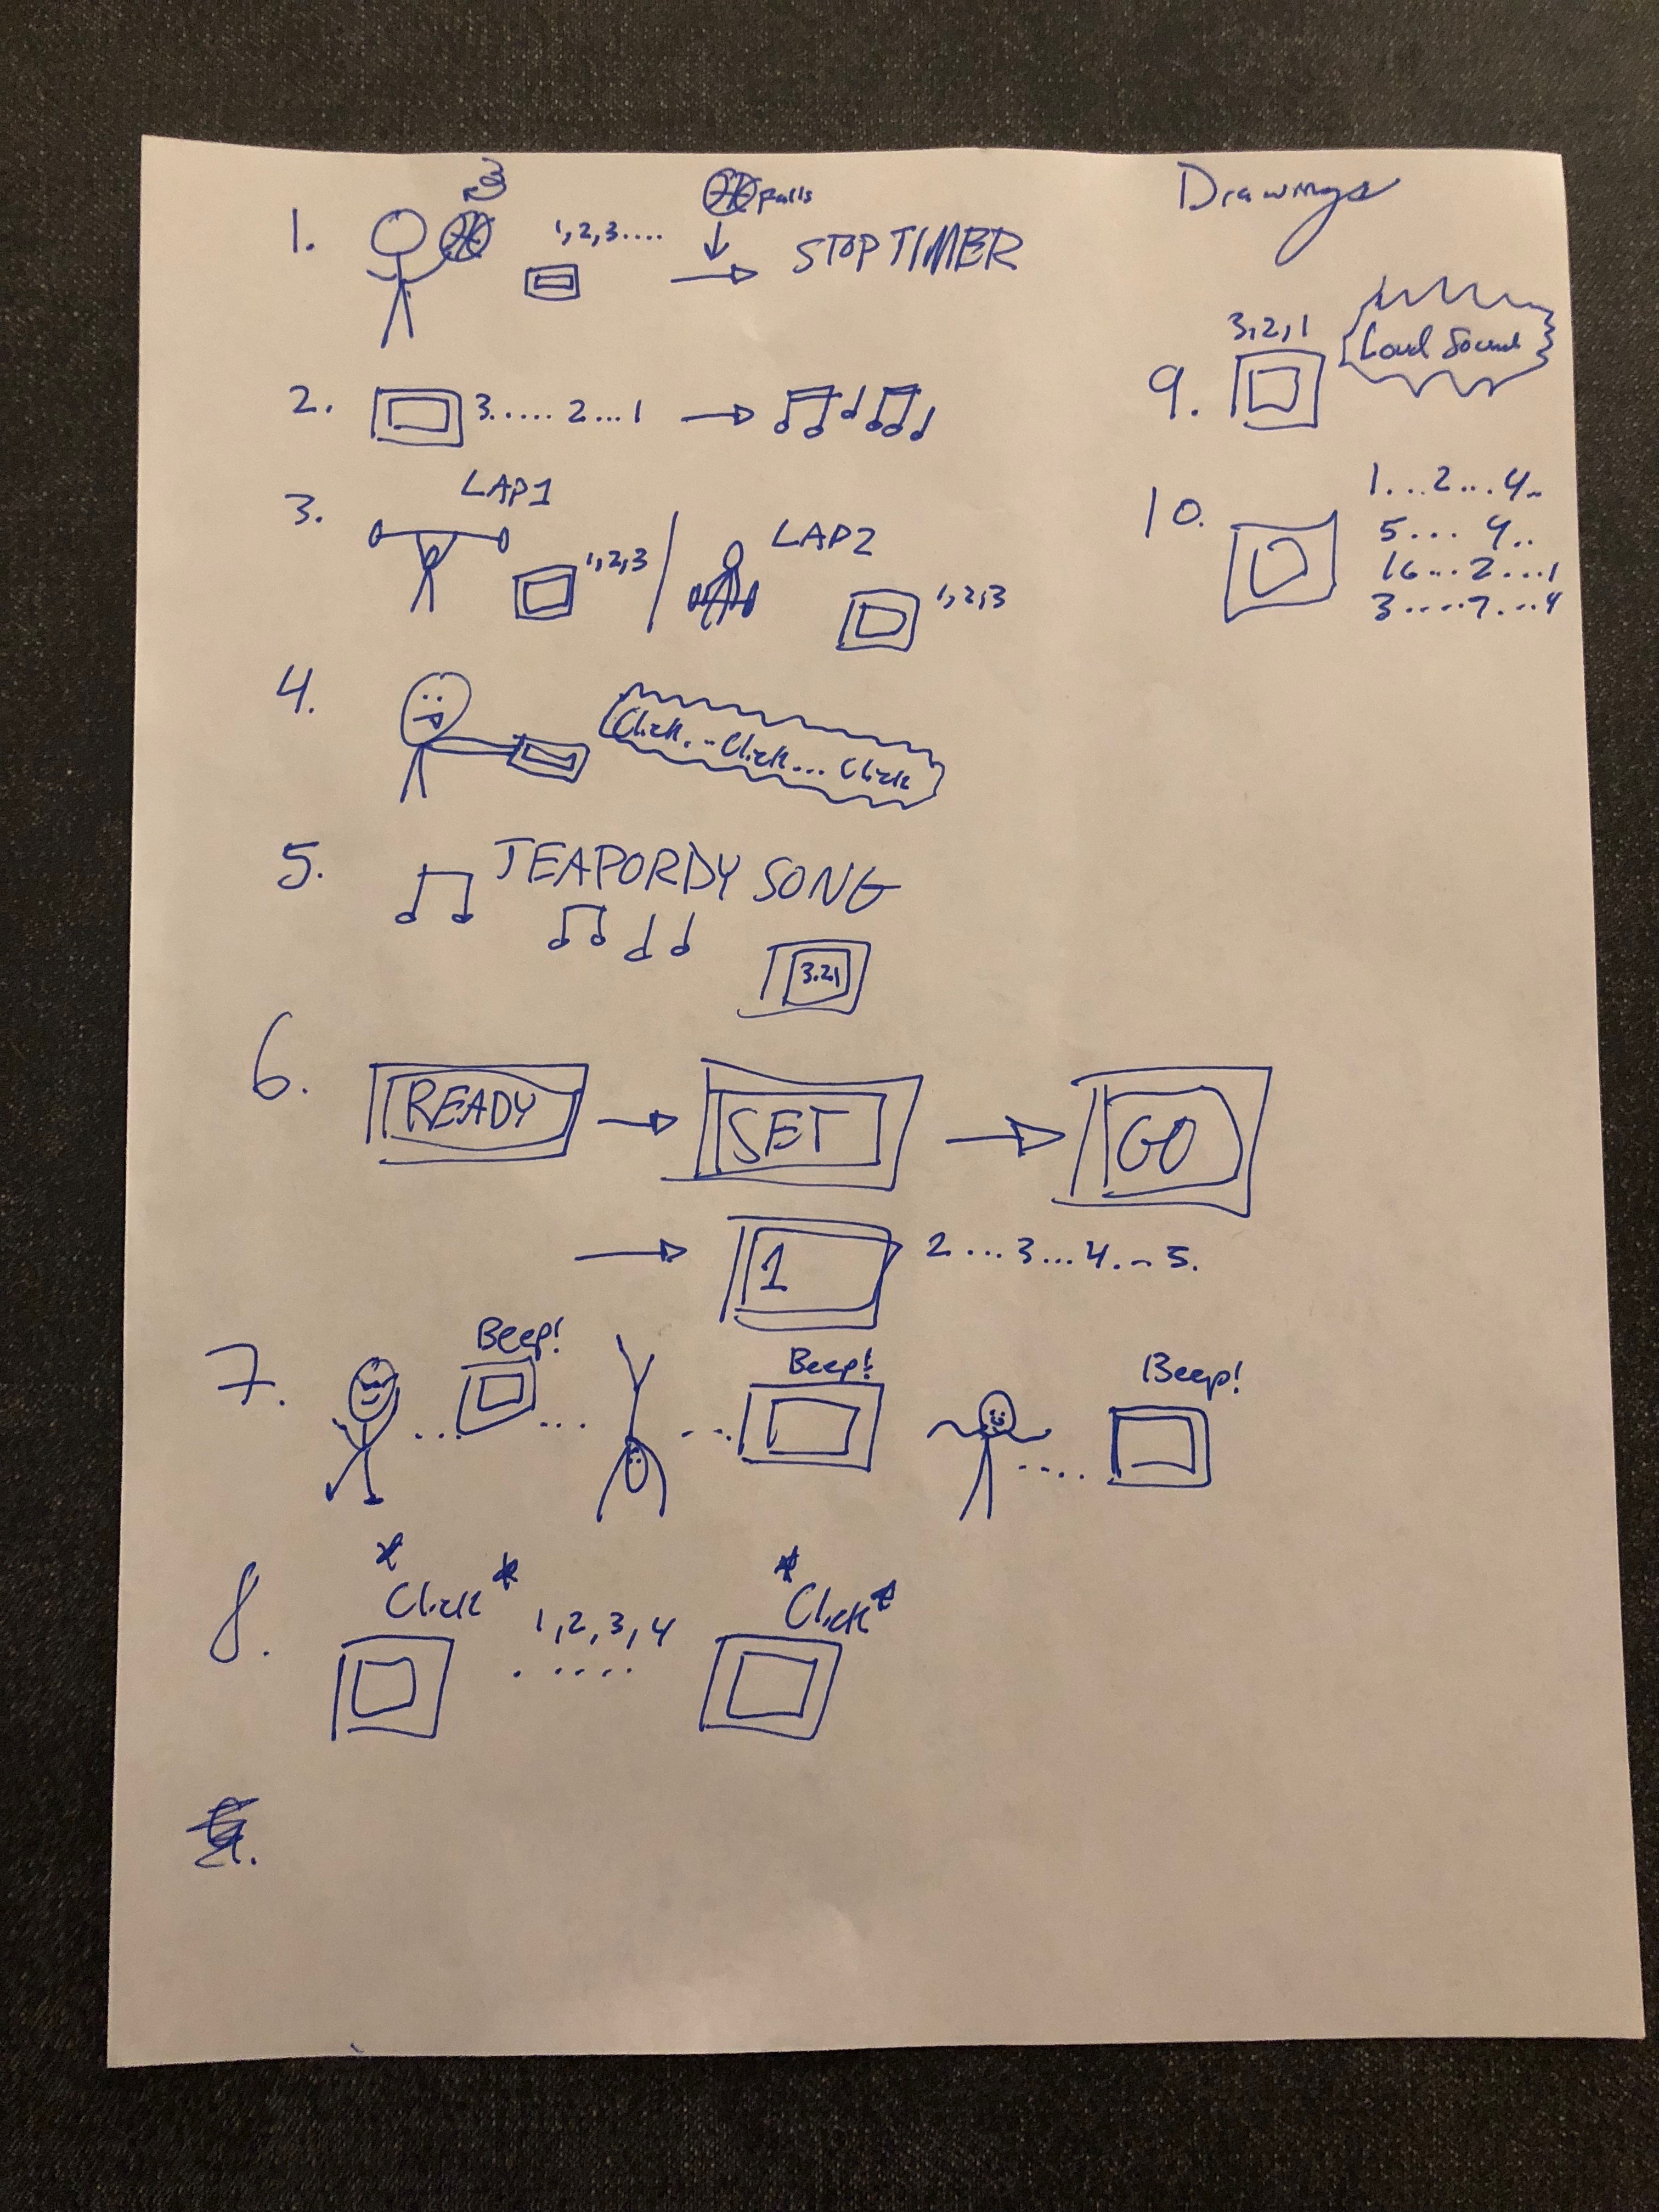 Drawings
1.
1,2,3....
falls
STOP TIMER
2.
3..... 2...1
3.
LAP1
1,2,3
LAP2
1,2,3
4.
Click...Click...Click
5.
JEAPORDY SONG
3.2.1
6.
READY
SET
GO
1
2...3...4...5.
7.
Beep!
...
...
Beep!
...
Beep!
....
8.
*Click*
1,2,3,4
.....
*Click*
9.
3,2,1
Loud Sound
10.
1...2...4..
5... 4..
16...2...1
3.....7...4